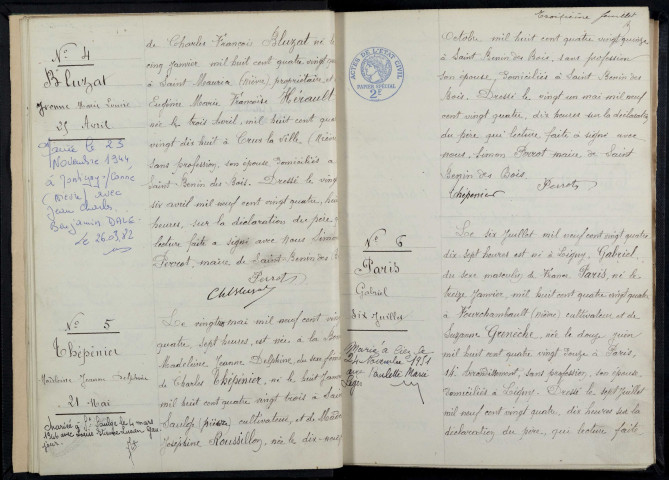 N° 4
Bluzat
Yvonne Marie Louise
25 Avril
Mariée le 25
Novembre 1944
à Montigny/Canne
(Nièvre) avec
Jean Charles
Benjamin DALE
le 26.03.82
de Charles François Bluzat né le
cinq Janvier mil huit cent quatre vingt
à Saint Maurice (Nièvre) propriétaire et
Eugénie Marie Françoise Hérault
née le trois Avril mil huit cent quatre
vingt dix huit à Crux la Ville (Nièvre
sans profession, son épouse domiciliés à
Saint Benin des Bois. Dressé le vingt
six avril mil neuf cent vingt quatre, huit
heures, sur la déclaration du père qui
lecture faite a signé avec Nous Simon
Perrot, maire de Saint-Benin des B
Perrot
N° 5
Thépénier
Madeleine Jeanne Delphine
21 Mai
mars
Le vingt mai mil neuf cent vingt
quatre, sept heures, est née à la
Madeleine Jeanne Delphine du sexe fémin
de Charles Thépénier, né le huit Janv
mil huit cent quatre vingt trois à Saint
Saulge (Nièvre) cultivateur, et de
Joséphine Roussillon, née le dix-neuf
Troisième feuillet
ACTES DE L'ÉTAT CIVIL
PAPIER SPÉCIAL
2F
Octobre mil huit cent quatre vingt
à Saint Benin des Bois, sans profession
son épouse, domiciliés à Saint Benin des
Bois. Dressé le vingt un mai mil neuf
cent vingt quatre, dix heures sur la déclaration
du père, qui lecture faite a signé avec
nous, Simon Perrot maire de Saint
Benin des Bois.
Thépénier Perrot
N° 6
Paris
Gabriel
Six Juillet
Marié à
Novembre 1951
avec Paulette Marie
Le six Juillet mil neuf cent vingt quatre
dix sept heures est né à Ligny, Gabriel
du sexe masculin de Paris, né le
treize Janvier mil huit cent quatre vingt quatre
à Fourchambault (Nièvre) cultivateur et de
Suzanne Greneche, née le douze Juin
mil huit cent quatre vingt onze à Paris,
18e arrondissement, sans profession, son épouse,
domiciliés à Ligny. Dressé le sept Juillet
mil neuf cent vingt quatre, dix heures sur la
déclaration du père, qui lecture faite